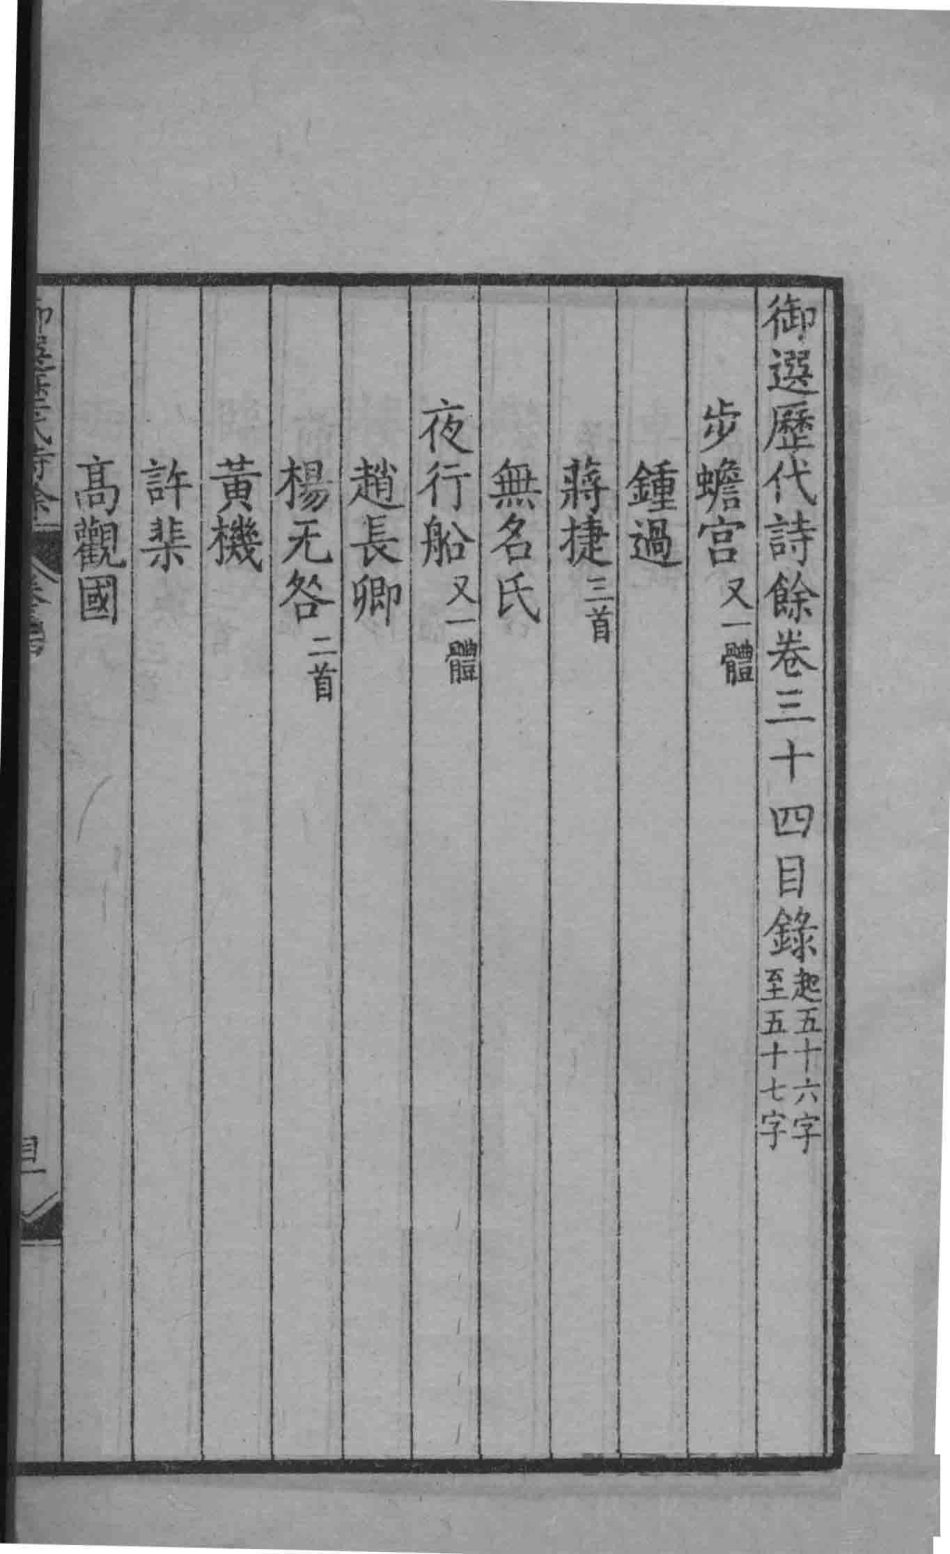 御選歷代詩餘卷三十四目錄起五十六字至五十七字
步蟾宫又一體
鍾過
蔣捷三首
無名氏
夜行船又一體
趙長卿
楊无咎二首
黃機
許棐
高觀國